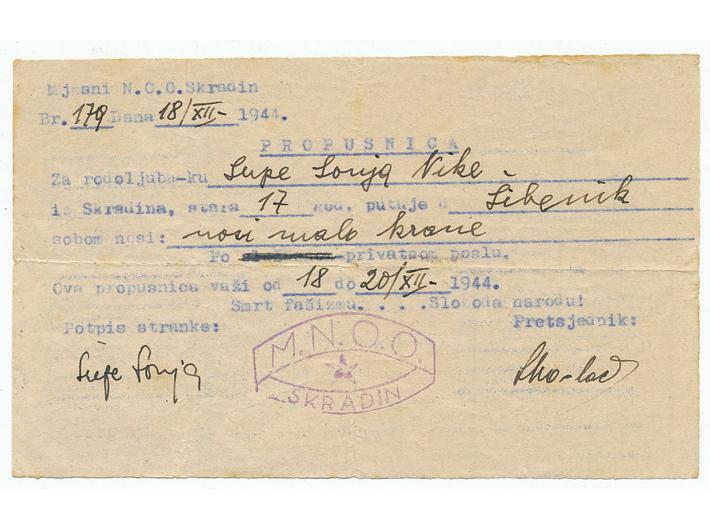 Mjesni N.O.O.Skradin
Br. 179 Dana 18/XII- 1944.
PROPUSNICA
Za rodoljuba-ku Supe Sonja Nike -
iz Skradina, stara 17 god. putuje u Šibenik
sobom nosi: nosi malo hrane
Po privatnom poslu.
Ova propusnica važi od 18 do 20/XII- 1944.
Smrt fašizmu. . . .Sloboda narodu!
Potpis stranke: Pretsjednik:
Supe Sonja
M.N.O.O.
SKRADIN